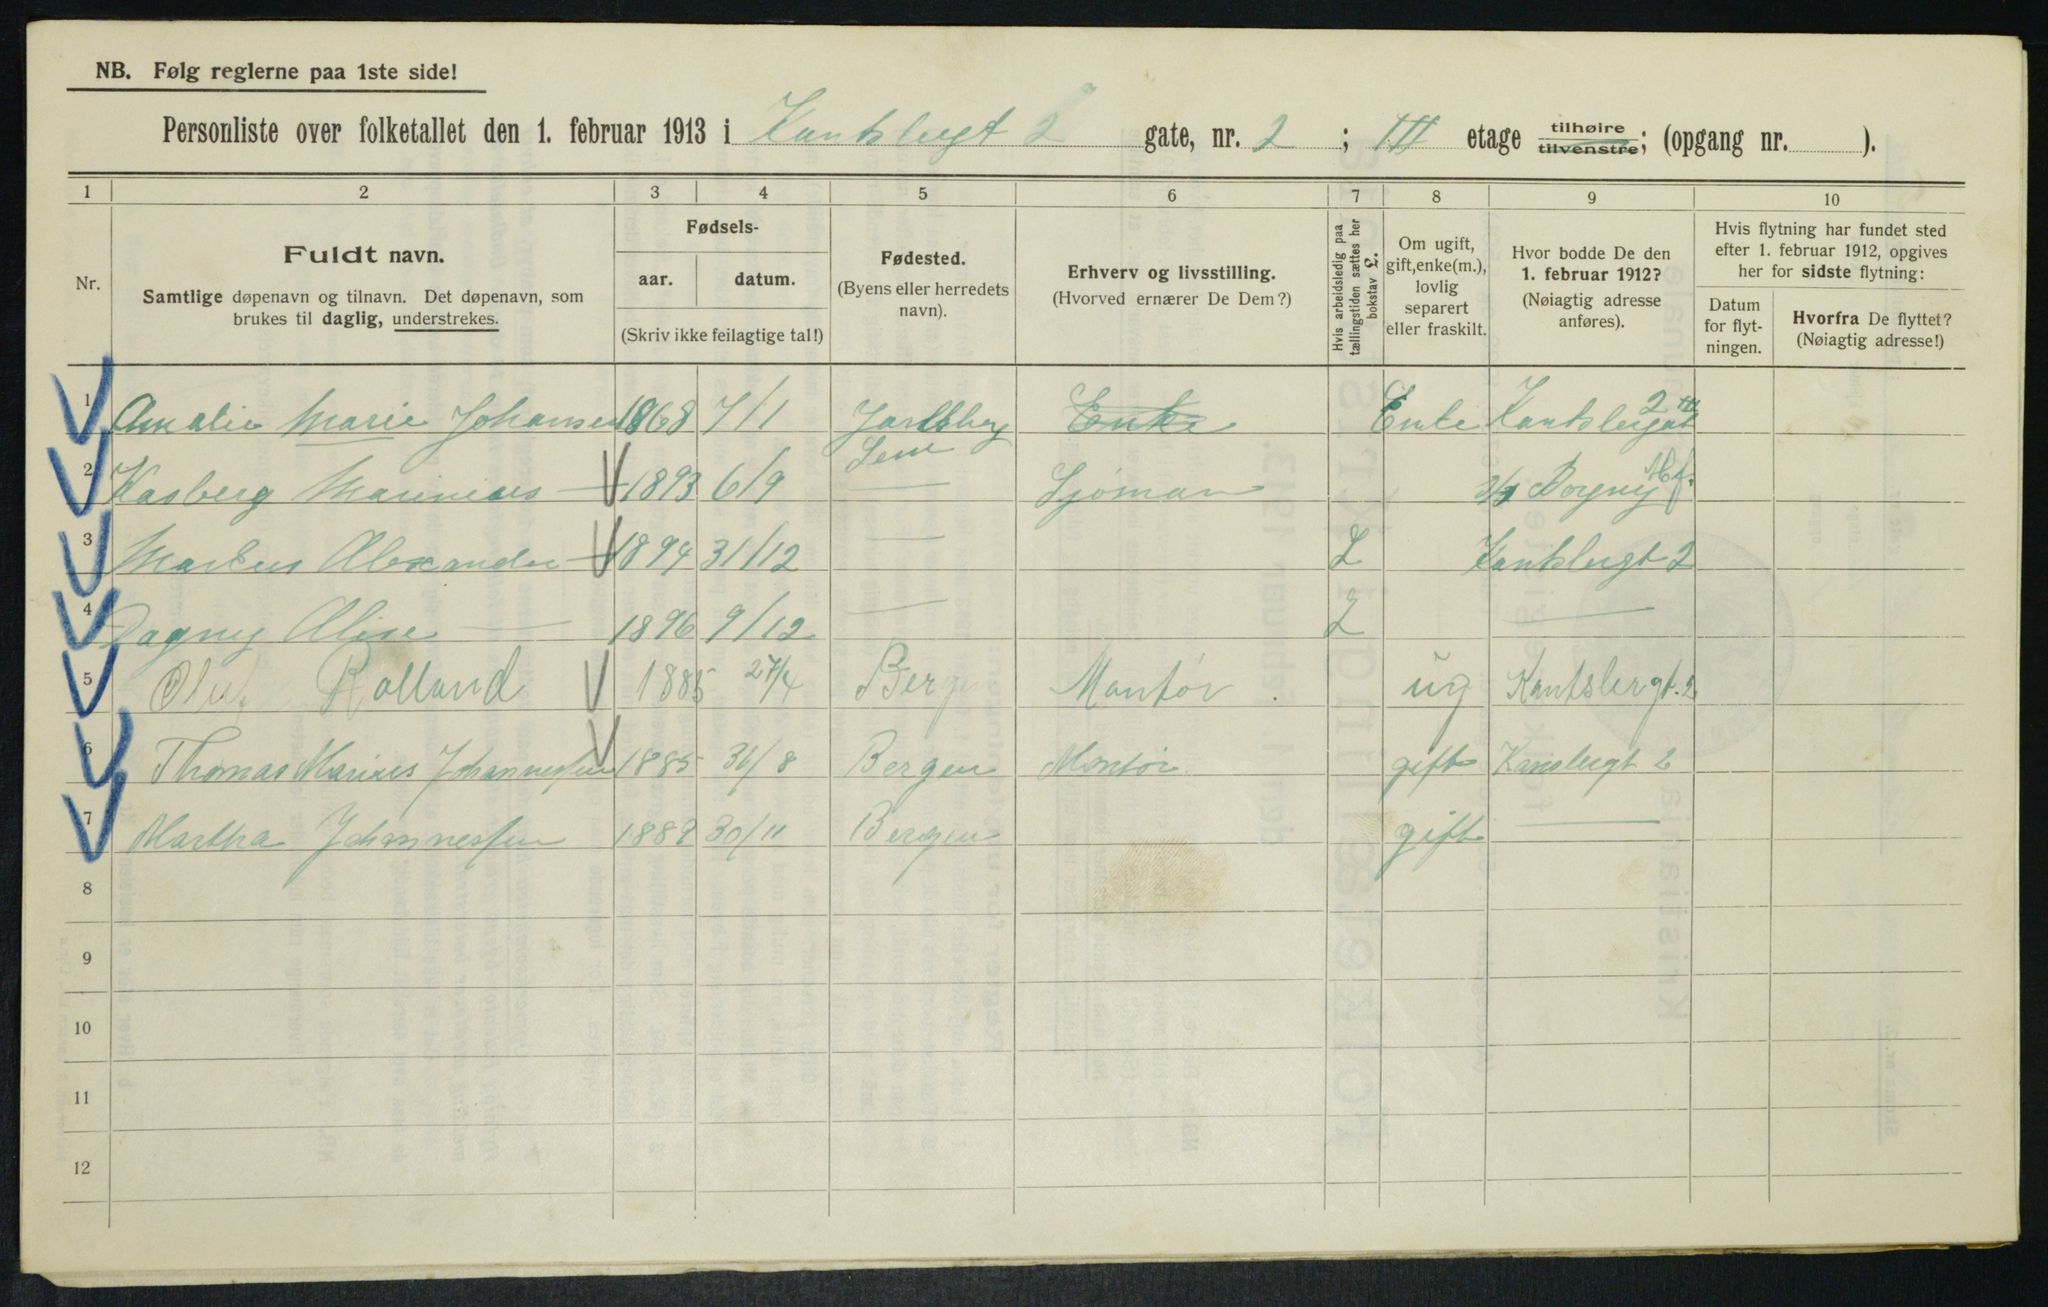 NB. Følg reglerne paa 1ste side!
Personliste over folketallet den 1. februar 1913 i Kantslergt 2 gate, nr. 2 ; III etage tilhøire tilvenstre; (opgang nr. ).
1 2 3 4 5 6 7 8 9 10
Nr.
Fuldt navn.
Samtlige døpenavn og tilnavn. Det døpenavn, som
brukes til daglig, understrekes.
Fødsels-
aar. datum.
(Skriv ikke feilagtige tal!)
Fødested.
(Byens eller herredets
navn).
Erhverv og livsstilling.
(Hvorved ernærer De Dem?)
Hvis arbeidsledig paa
tællingstiden sættes her
bokstav L.
Om ugift,
gift, enke(m.),
lovlig
separert
eller fraskilt.
Hvor bodde De den
1. februar 1912?
(Nøiagtig adresse
anføres).
Hvis flytning har fundet sted
efter 1. februar 1912, opgives
her for sidste flytning:
Datum
for flyt-
ningen.
Hvorfra De flyttet?
(Nøiagtig adresse!)
1 Amalie Marie Johansen 1868 7/1 Jarlsberg Enke Enke Kantslergat 2 III
2 Kasberg Marinius — 1893 6/9 Sem — Sjøman Borgny
3 Markus Alexander — 1894 31/12 — L Kantslergt 2
4 Dagny Alise — 1896 9/12 — L —
5 Oluf Rolland 1885 27/4 Bergen Montør ug Kantslergt. 2
6 Thomas Marius Johannessen 1885 31/8 Bergen Montør gift Kanslergt 2
7 Martha Johannessen 1889 30/11 Bergen gift —
8
9
10
11
12